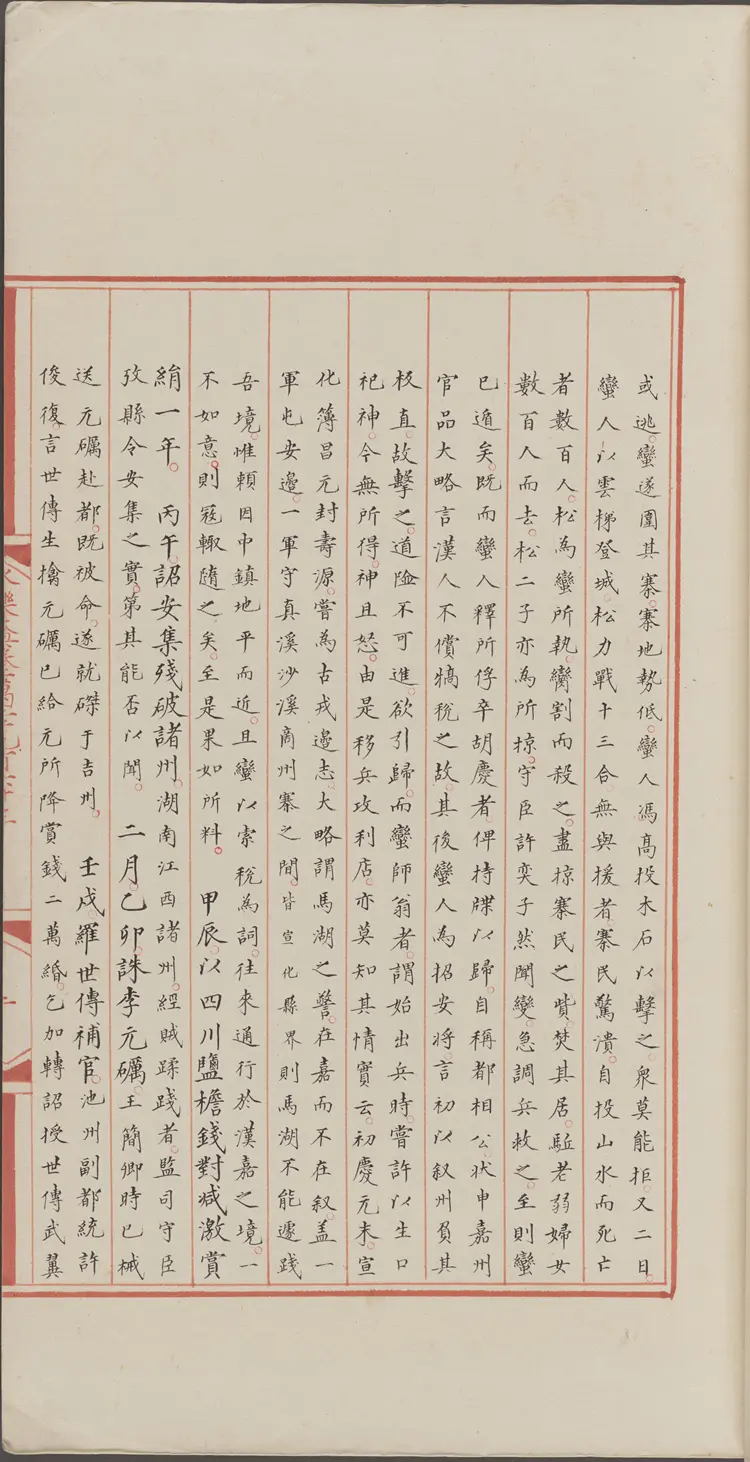 或逃。蠻遂圍其寨。寨地勢低。蠻人馮髙投木石以擊之。衆莫能拒。又二日。
蠻人以雲梯登城。松力戰十三合。無與援者。寨民驚潰。自投山水而死亡
者數百人。松為蠻所執。臠割而殺之。盡掠寨民之貲。焚其居。驅老弱婦女
數百人而去。松二子亦為所掠。守臣許奕子然聞變。急調兵救之。至則蠻
已遁矣。既而蠻人釋所俘卒胡慶者。俾持牒以歸。自稱都相公。状申嘉州
官品大略言漢人不償犒稅之故。其後蠻人為招安將。言初以叙州負其
板直。故擊之。道險不可進。欲引歸。而蠻師翁者。謂始出兵時。嘗許以生口
祀神。今無所得。神且怒。由是移兵攻利店。亦莫知其情實云。初慶元末。宣
化簿昌元封壽源。嘗為古戎邉志。大略謂馬湖之警。在嘉而不在叙。盖一
軍屯安邉。一軍守真溪沙溪商州寨之間。皆宣化縣界則馬湖不能遽踐
吾境。惟頼因中鎮地平而近。且蠻以索稅為詞。往來通行於漢嘉之境。一
不如意。則冦輙隨之矣。至是果如所料。 甲辰。以四川鹽檐錢對减激賞
絹一年。 丙午。詔安集殘破諸州。湖南江西諸州。經賊蹂踐者。監司守臣
攷縣令安集之實。第其能否以聞。 二月。乙卯。誅李元礪。王簡卿時已械
送元礪赴都。既被命。遂就磔于吉州。 壬戌。羅世傳補官。池州副都統許
俊復言世傳生擒元礪已給元所降賞錢二萬緡。乞加轉詔授世傳武翼